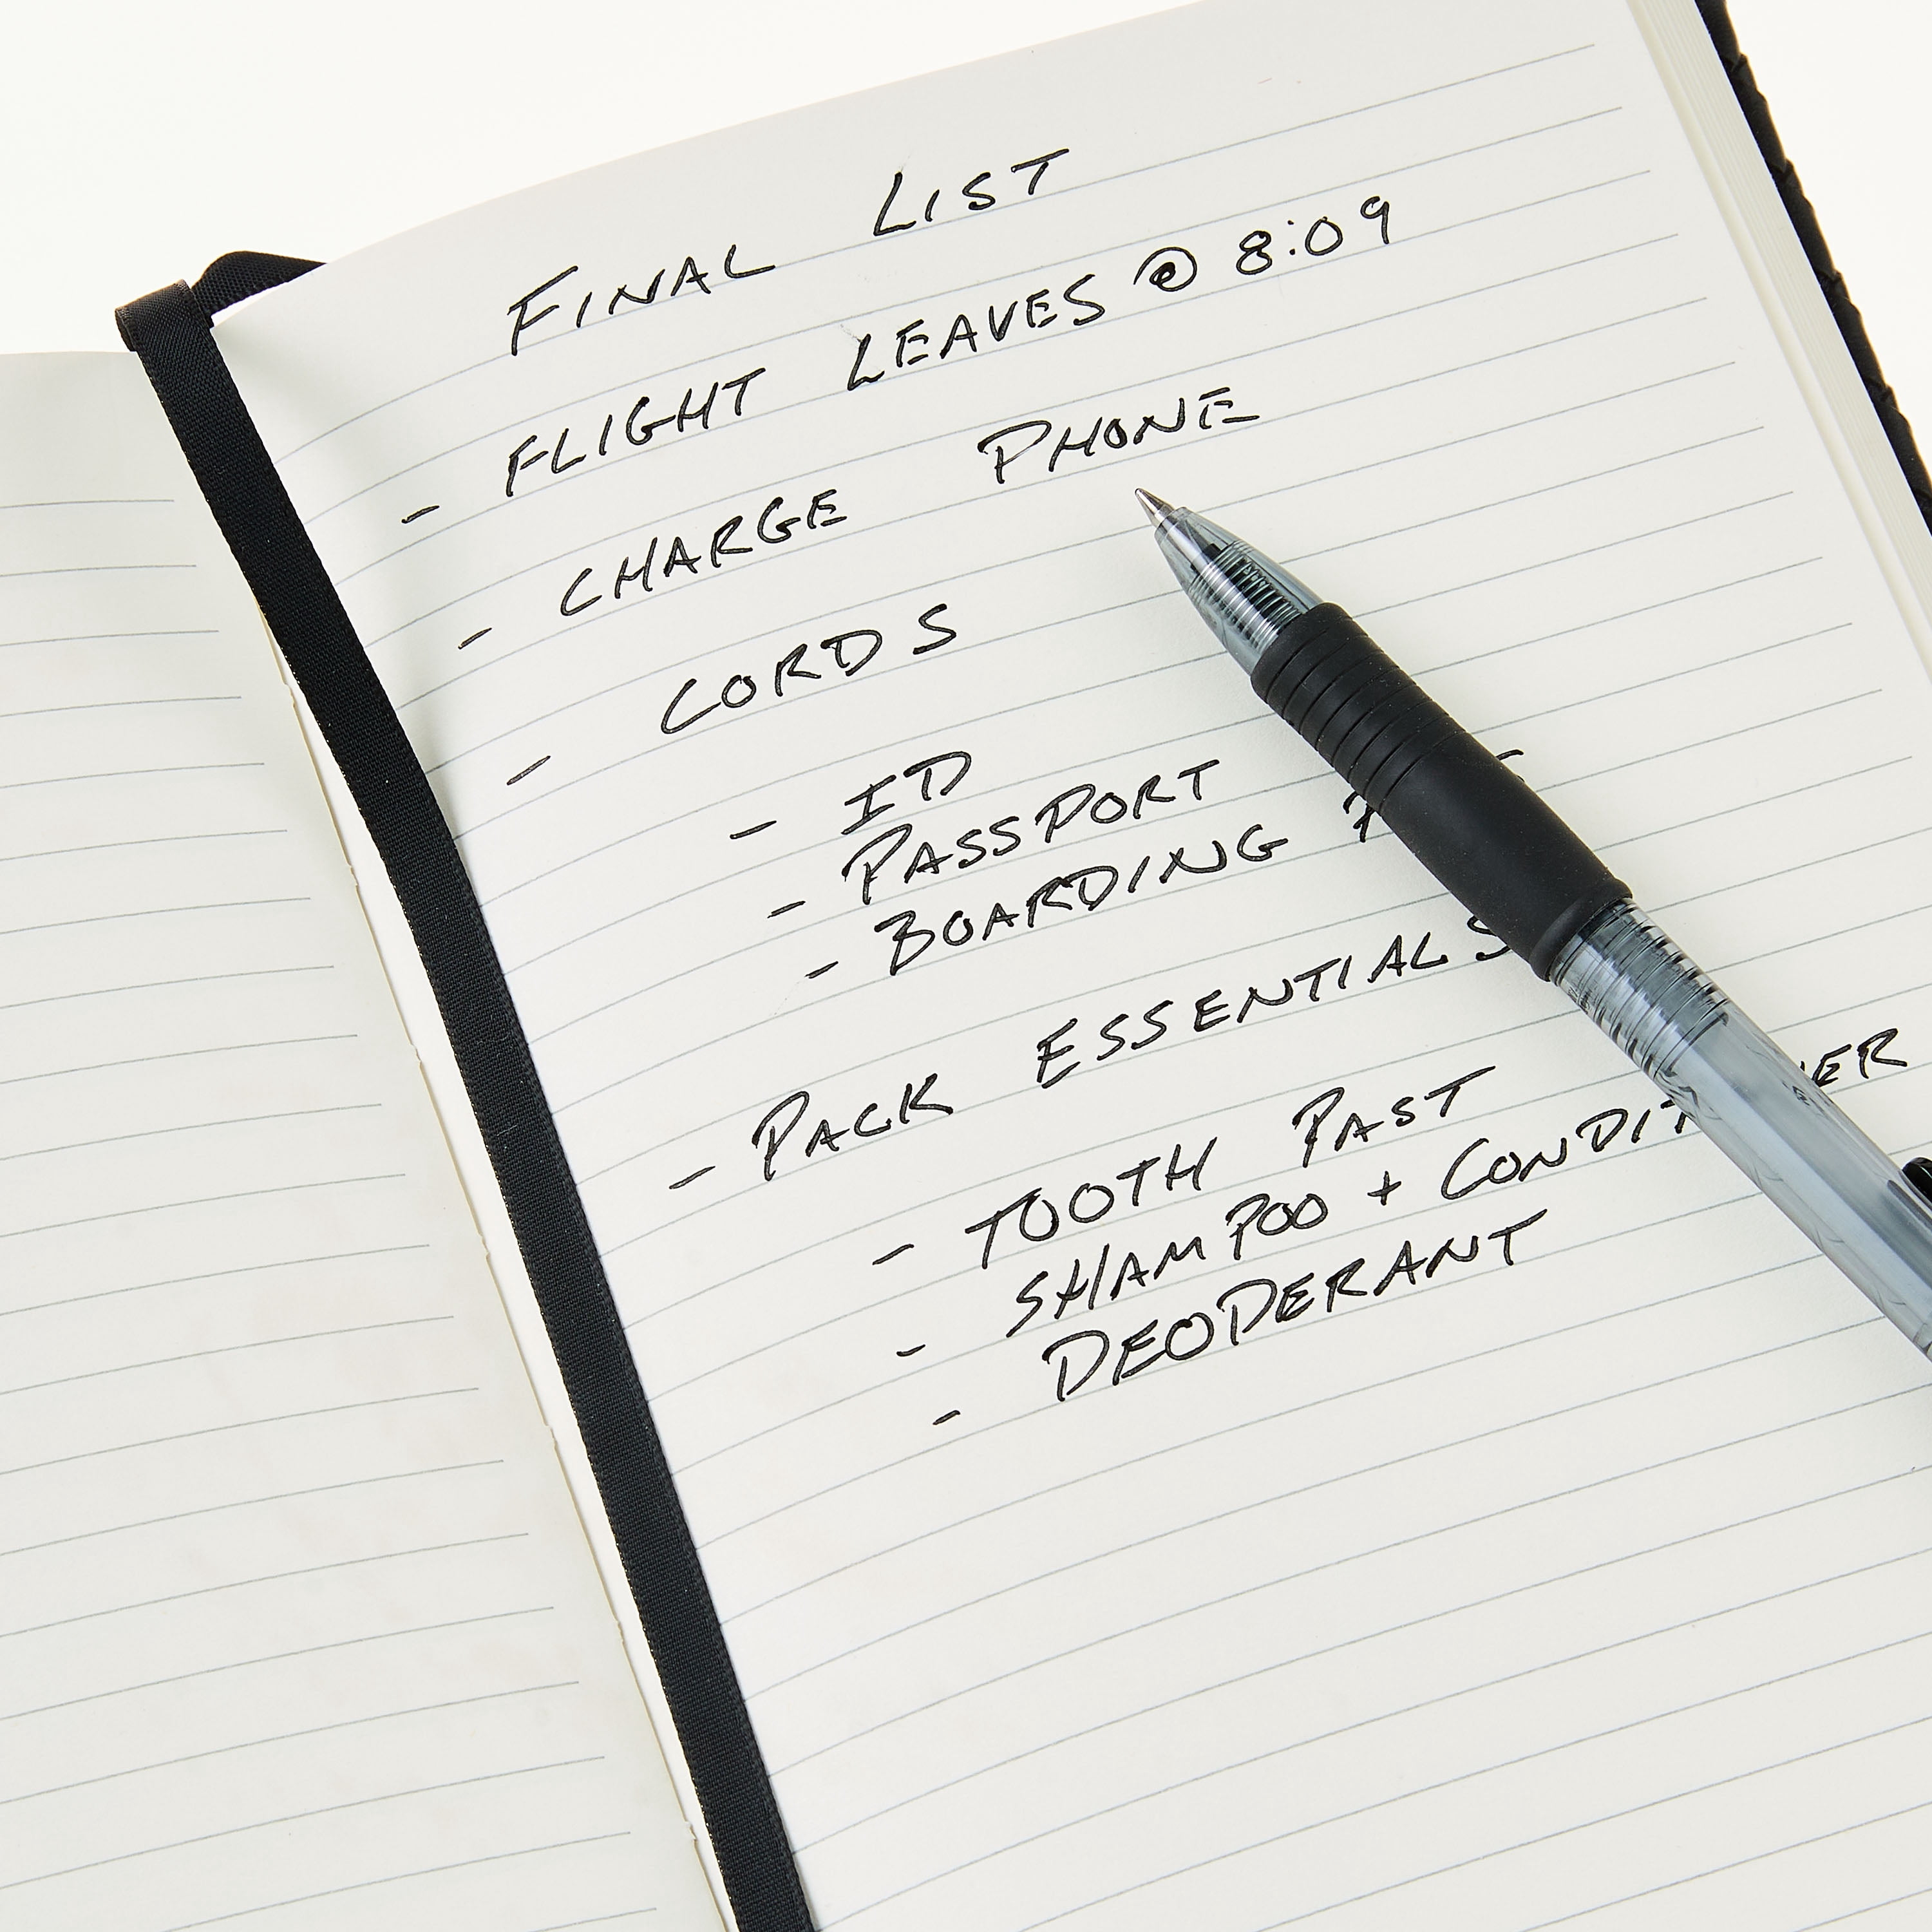 FINAL LIST
- FLIGHT LEAVES @ 8:09
- CHARGE PHONE
- CORDS
- ID
- PASSPORT
- BOARDING
- PACK ESSENTIALS
- TOOTH PAST
- SHAMPOO + CONDITIONER
- DEODERANT